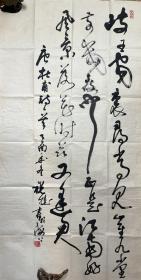 岐王宅裏尋常見崔九堂
前幾度聞正是江南好
風景落花時節又逢君
唐杜甫詩